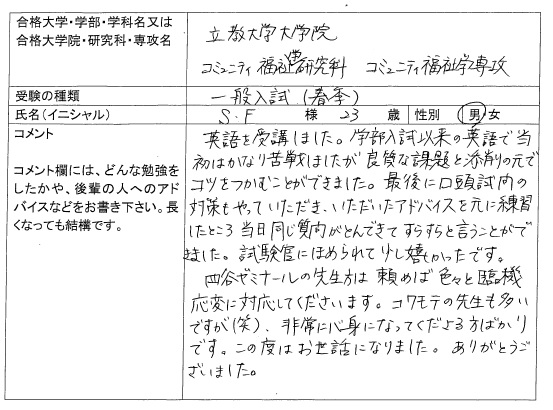 合格大学・学部・学科名又は
合格大学院・研究科・専攻名
立教大学大学院
コミュニティ福祉学研究科 コミュニティ福祉学専攻
受験の種類
一般入試(春季)
氏名(イニシャル)
S・F 様 23 歳 性別 男・女
コメント
コメント欄には、どんな勉強を
したかや、後輩の人へのアド
バイスなどをお書き下さい。長
くなっても結構です。
英語を受講しました。学部入試以来の英語で当
初はかなり苦戦しましたが良質な課題と添削の元で
コツをつかむことができました。最後に口頭試問の
対策もやっていただき、いただいたアドバイスを元に練習
したところ当日同じ質問がとんできてすらすらと言うことがで
きました。試験官にほめられて少し嬉しかったです。
四谷ゼミナールの先生方は頼めば色々と臨機
応変に対応してくださいます。コワモテの先生も多い
ですが(笑)、非常に心身になってくださる方ばかり
です。この度はお世話になりました。ありがとうご
ざいました。